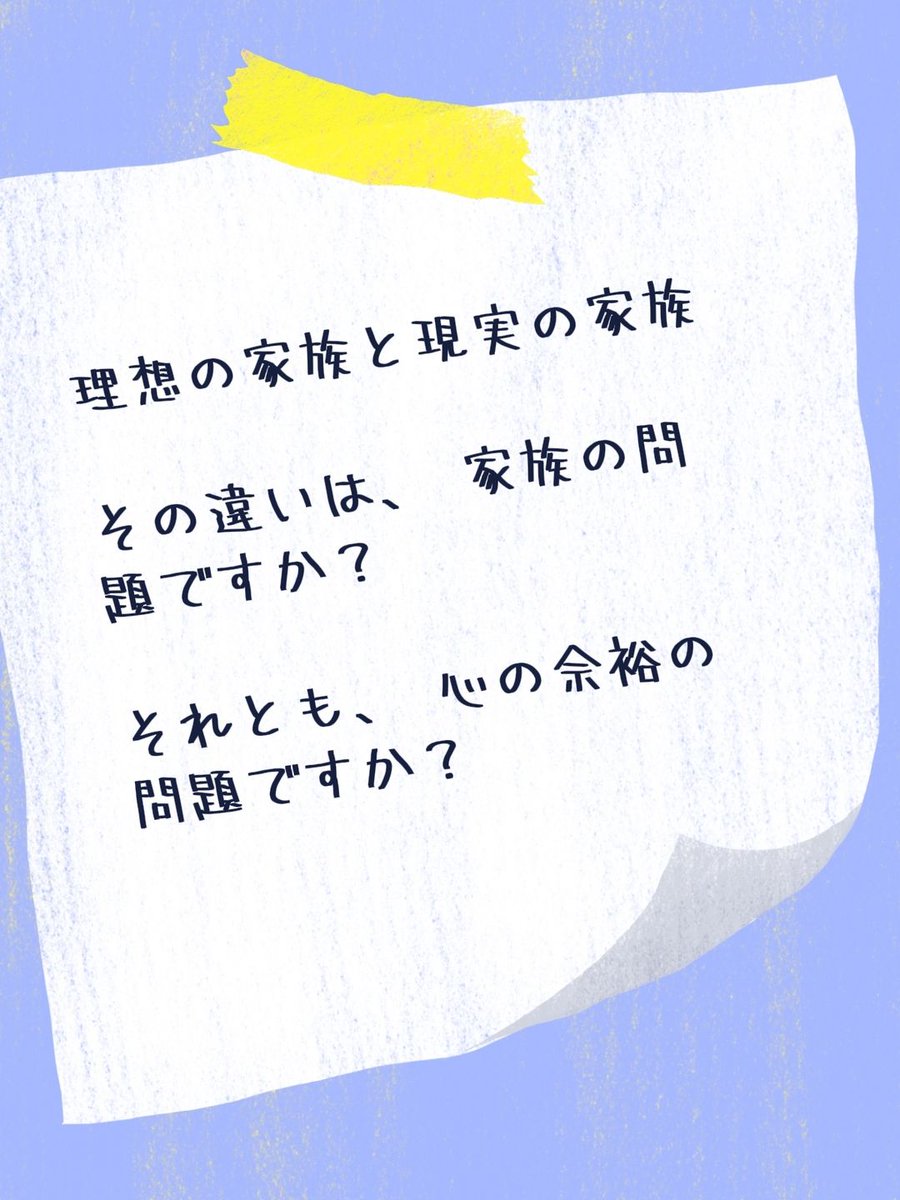 理想の家族と現実の家族
その違いは、 家族の問
題ですか？
それとも、 心の余裕の
問題ですか？